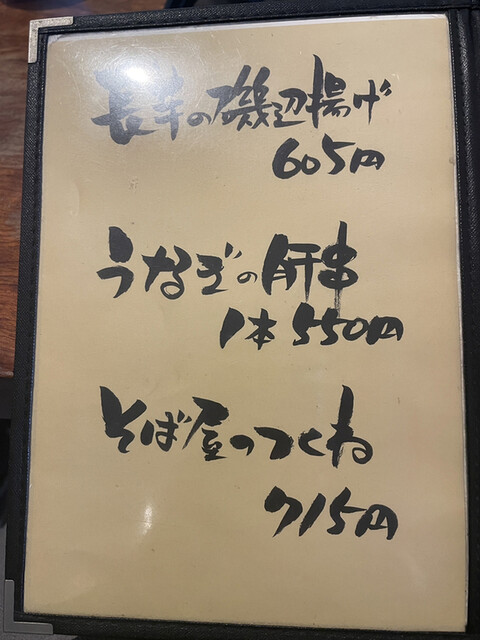 長芋の磯辺揚げ
605円
うなぎの肝串
1本550円
そば屋のつくね
715円